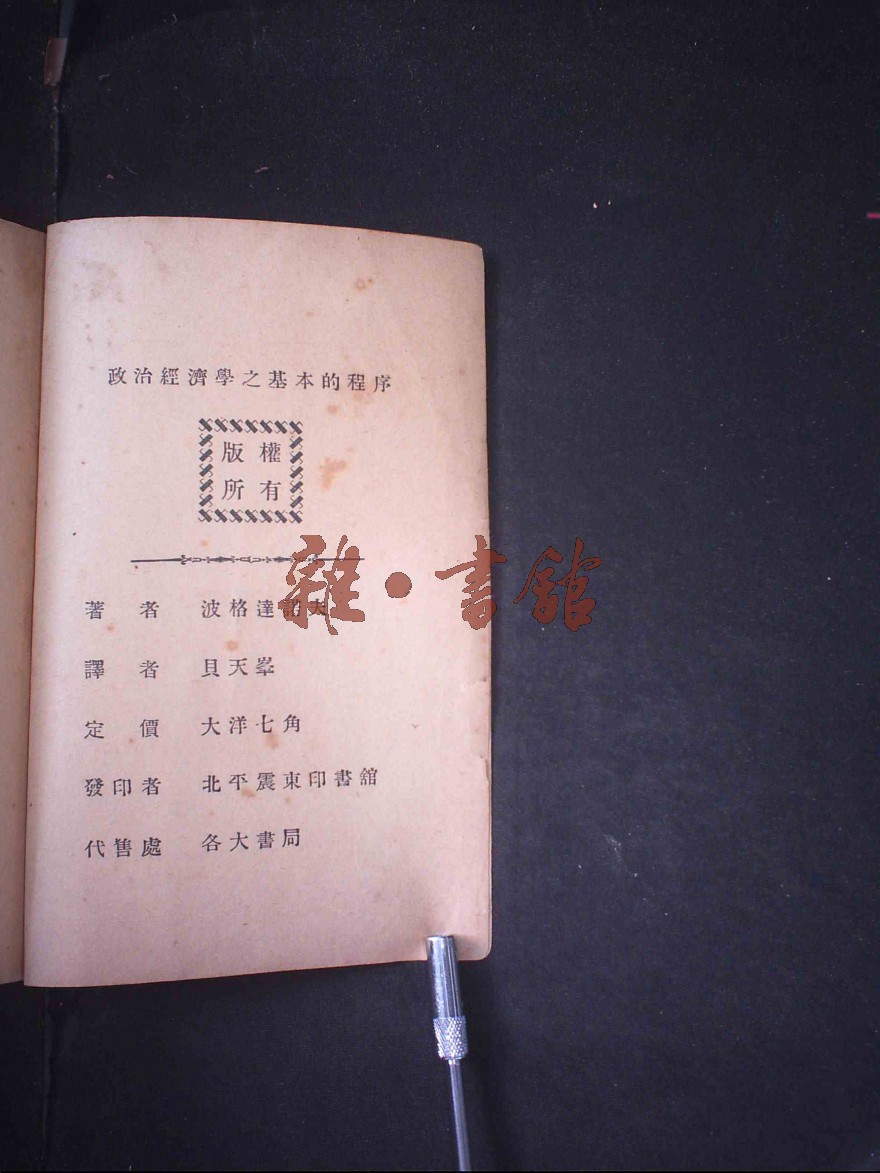 政治經濟學之基本的程序
版權
所有
著者 波格達諾夫
譯者 貝天峯
定價 大洋七角
發印者 北平震東印書舘
代售處 各大書局
雜·書舘